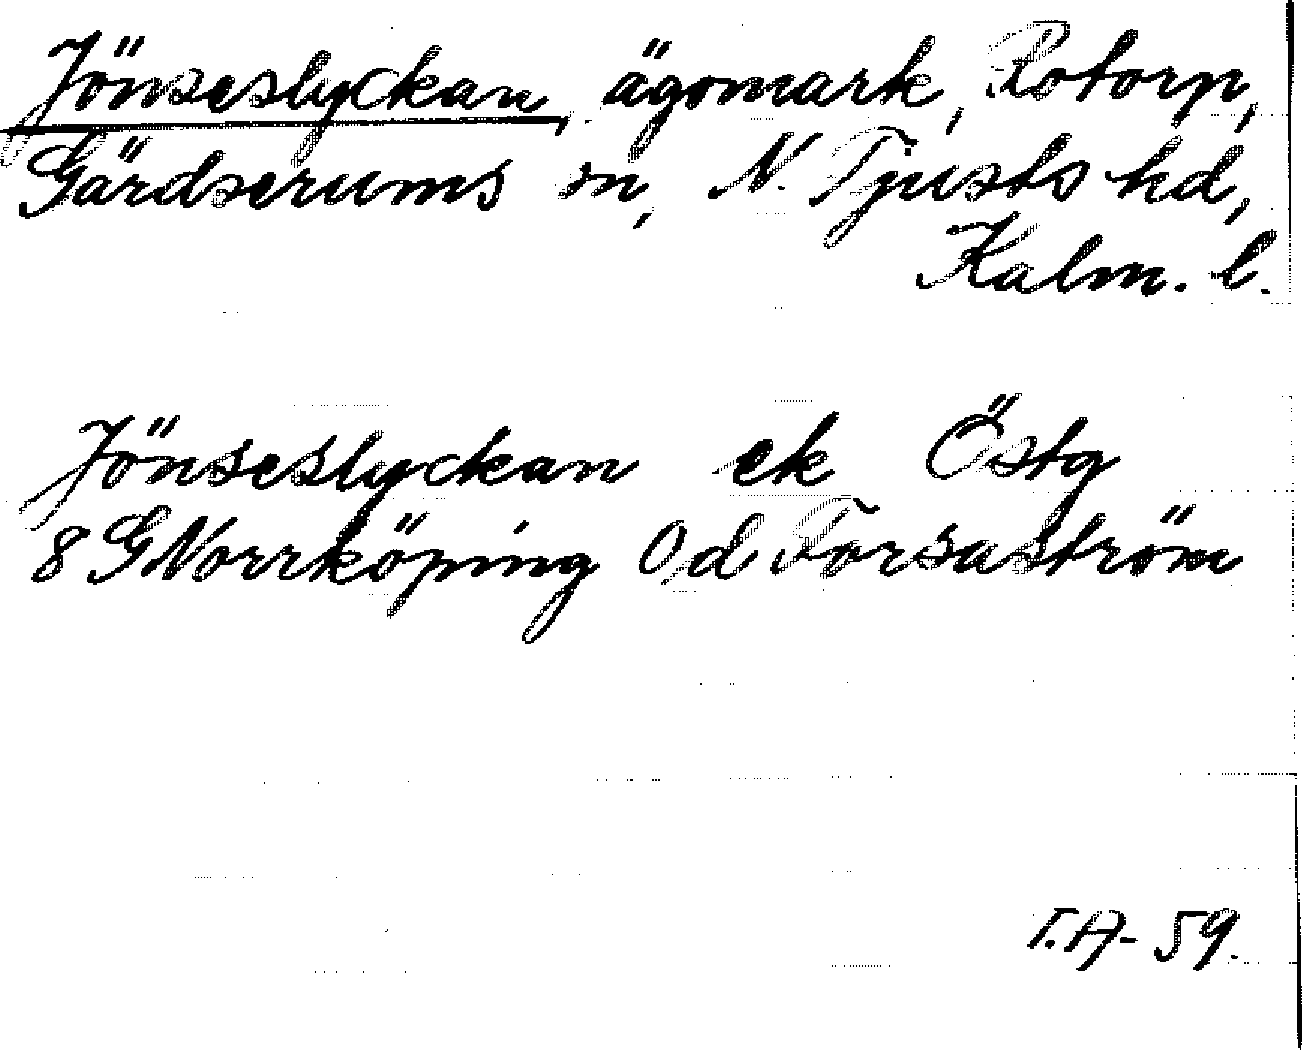 Jönseslyckan, ägomark, Rotorp,
Gärdserums sn, N. Tjusts hd,
Kalm. l.
Jönseslyckan ek Östg
8 G Norrköping Od Forsaström
T.A- 59.